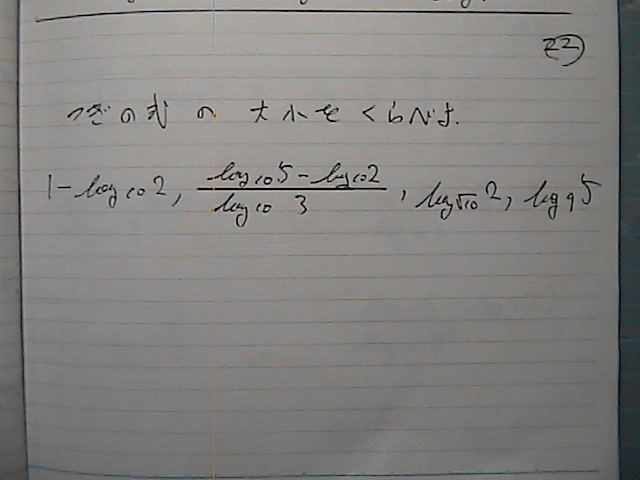 22
つぎの式の大小をくらべよ.
1-log₁₀2, (log₁₀5-log₁₀2)/(log₁₀3), log_√10 2, log₉5